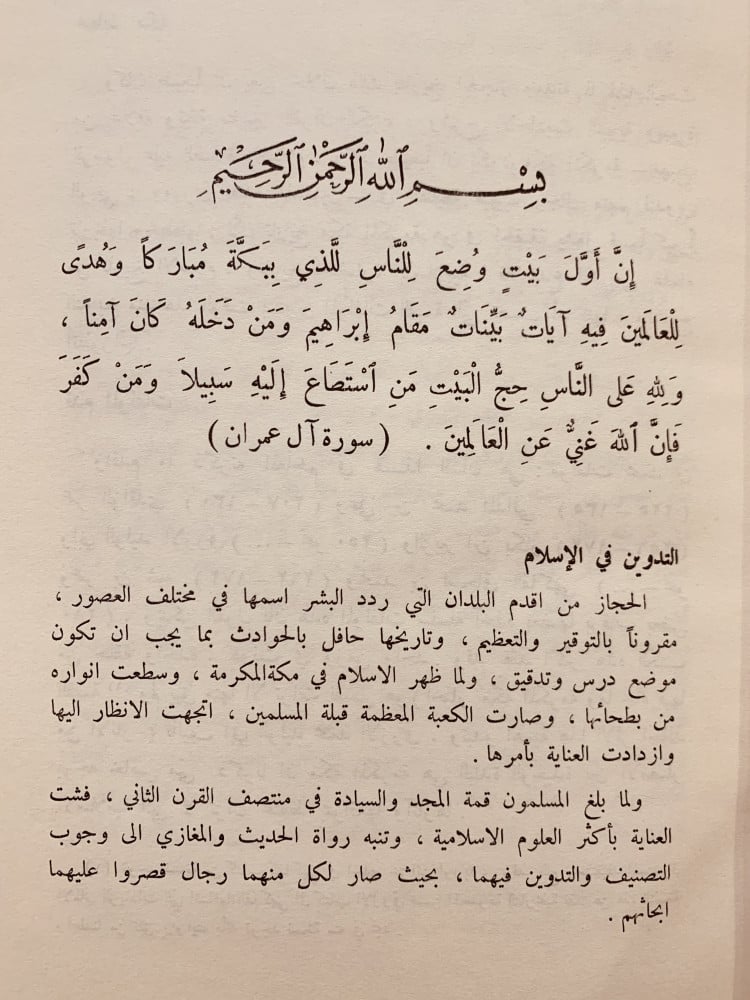 بِسْمِ ٱللّٰهِ ٱلرَّحْمٰنِ ٱلرَّحِيْمِ
إِنَّ أَوَّلَ بَيْتٍ وُضِعَ لِلْنَّاسِ لَلَّذِي بِبَكَّةَ مُبَارَكاً وَهُدًى
لِلْعَالَمِينَ فِيهِ آيَاتٌ بَيِّنَاتٌ مَقَامُ إِبْرَاهِيمَ وَمَنْ دَخَلَهُ كَانَ آمِناً ،
وَلِلهِ عَلى النَّاسِ حِجُّ الْبَيْتِ مَنِ ٱسْتَطَاعَ إِلَيْهِ سَبِيلاَ وَمَنْ كَفَرَ
فَإِنَّ ٱللهَ غَنِيٌّ عَنِ الْعَالَمِينَ . ( سورة آل عمران )
التدوين في الإسلام
الحجاز من اقدم البلدان التي ردد البشر اسمها في مختلف العصور ،
مقروناً بالتوقير والتعظيم ، وتاريخها حافل بالحوادث بما يجب ان تكون
موضع درس وتدقيق ، ولما ظهر الاسلام في مكة المكرمة ، وسطعت انواره
من بطحائها ، وصارت الكعبة المعظمة قبلة المسلمين ، اتجهت الانظار اليها
وازدادت العناية بأمرها .
ولما بلغ المسلمون قمة المجد والسيادة في منتصف القرن الثاني ، فشت
العناية بأكثر العلوم الاسلامية ، وتنبه رواة الحديث والمغازي الى وجوب
التصنيف والتدوين فيهما ، بحيث صار لكل منهما رجال قصروا عليهما
ابحاثهم .